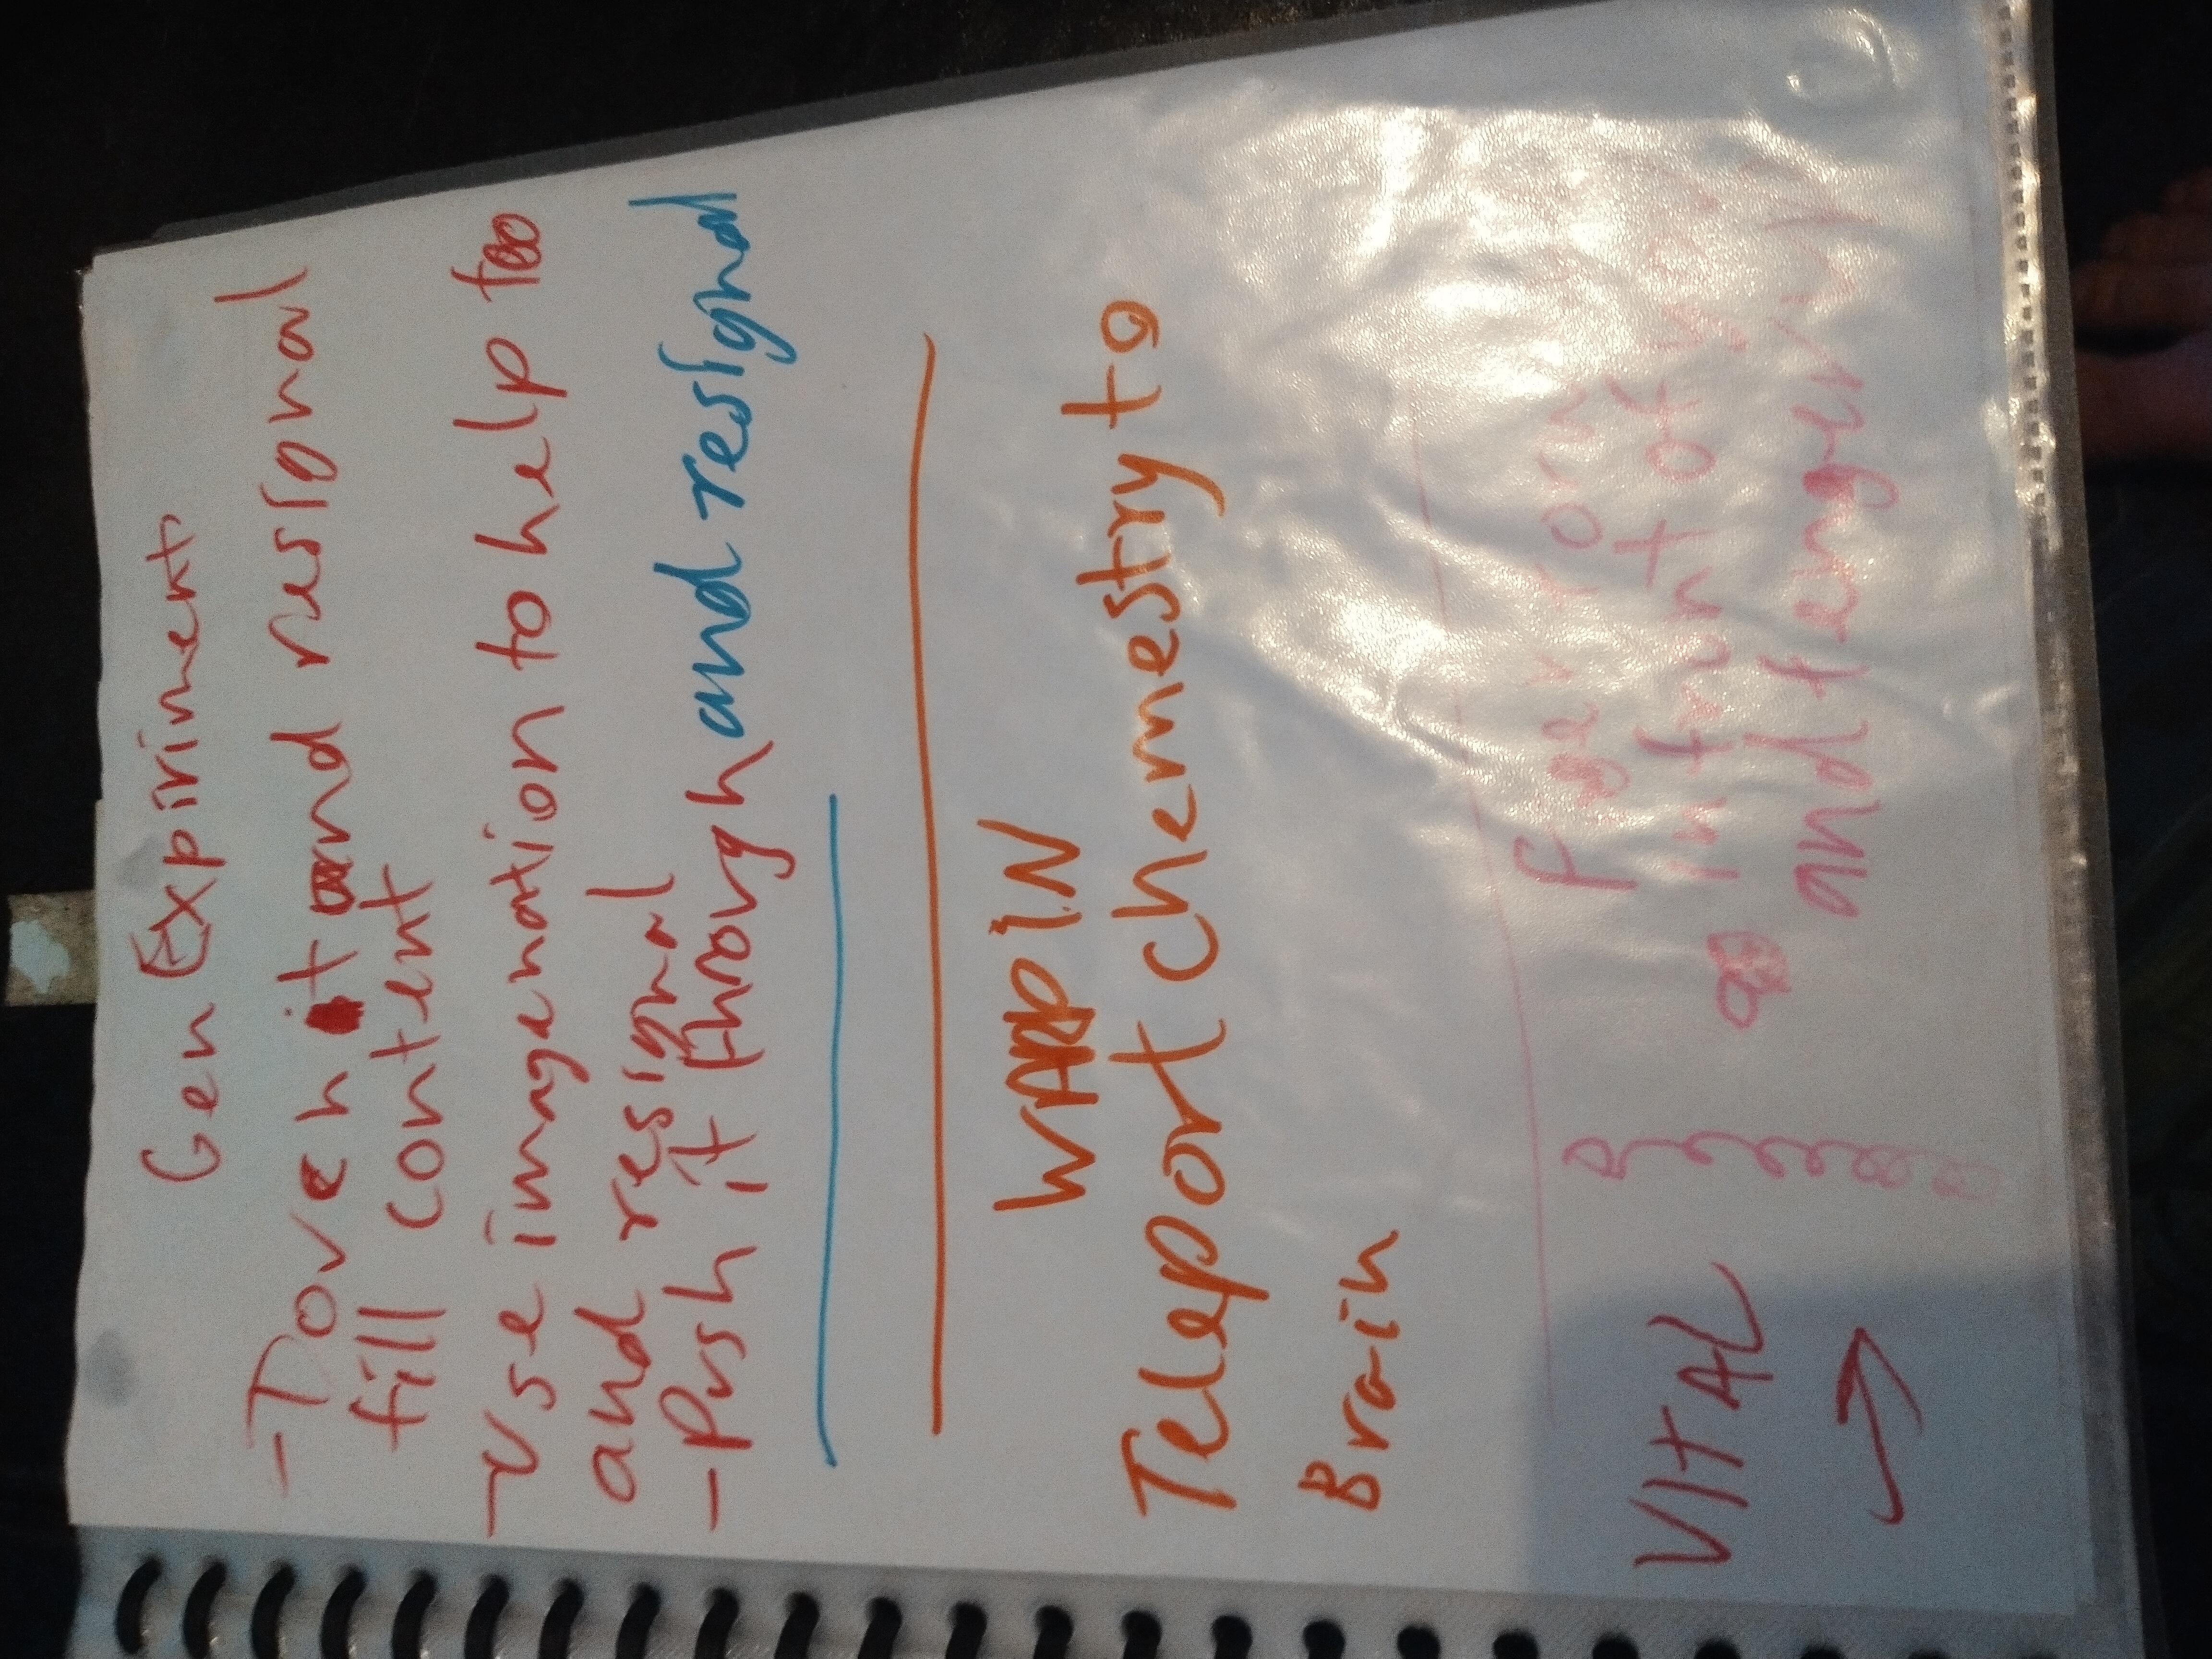 Gen Expiriment
-Toveh it and resignal
fill content
-use imagenation to help too
and resignal
-Push it through and resignal
WARPIN
Teleport chemestry to
Brain
VITAL
on
infrunt of you
and fengerry